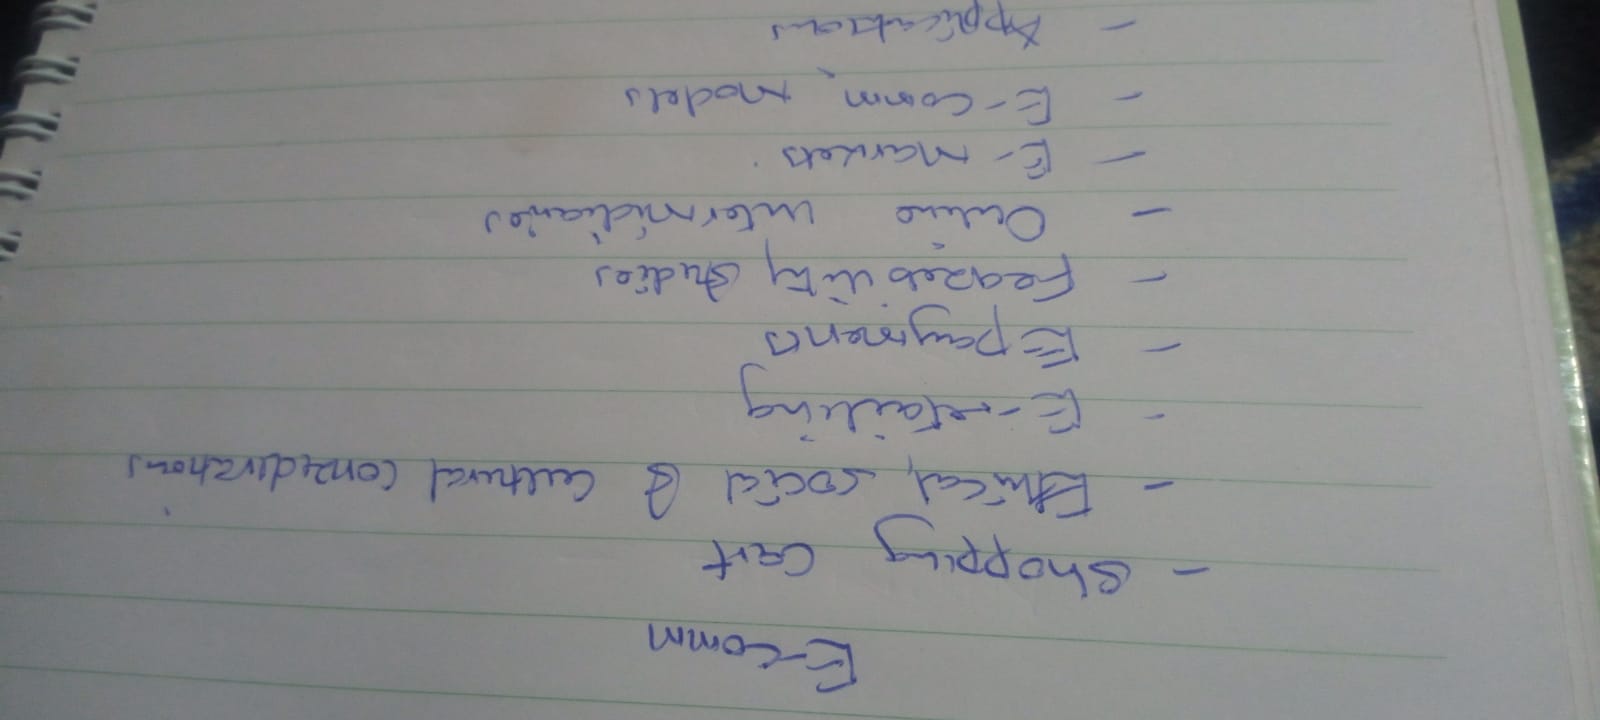 E-comm
- Shopping Cart
- Ethical, social & Cultural Considerations
- E-retailing
- E payments
- Feazebility studies
- Online intermidiaries
- E- markets
- E-Comm. models
- Applications